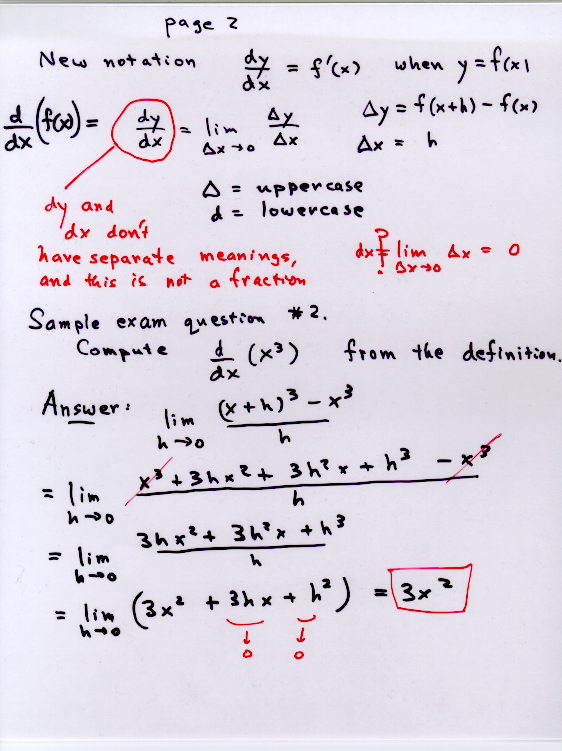 page 2
New notation dy/dx = f'(x) when y = f(x)
d/dx (f(x)) = dy/dx = lim Δx→0 Δy/Δx Δy = f(x+h) - f(x)
Δx = h
Δ = uppercase
d = lowercase
dy and
dx don't
have separate meanings,
and this is not a fraction
dx ?= lim Δx→0 Δx = 0
Sample exam question #2.
Compute d/dx (x³) from the definition.
Answer: lim h→0 ((x+h)³ - x³)/h
= lim h→0 (x³ + 3hx² + 3h²x + h³ - x³)/h
= lim h→0 (3hx² + 3h²x + h³)/h
= lim h→0 (3x² + 3hx + h²) = 3x²
↓ ↓
0 0